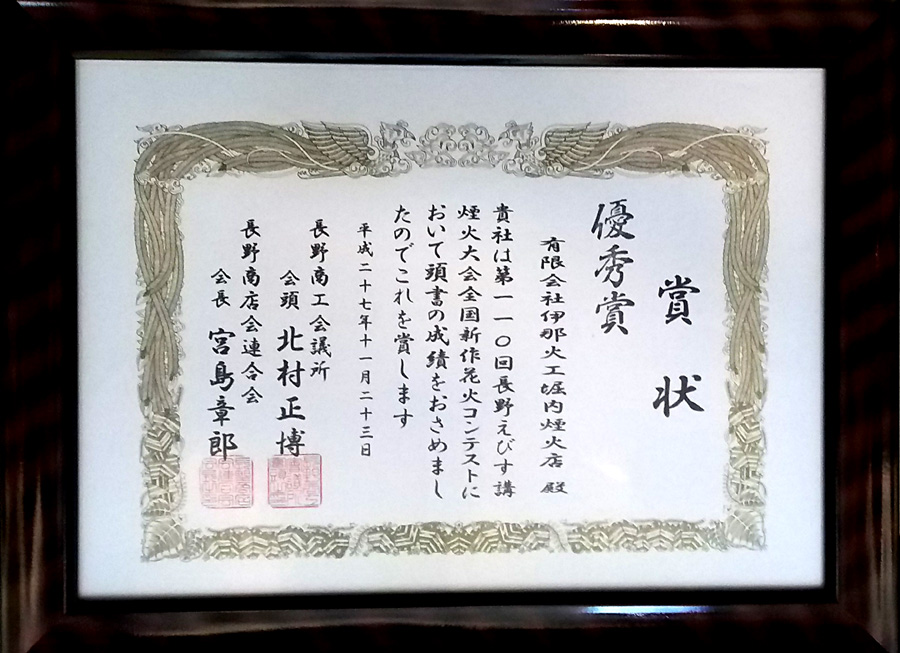 賞状
優秀賞
有限会社伊那火工堀内煙火店 殿
貴社は第一一〇回長野えびす講
煙火大会全国新作花火コンテストに
おいて頭書の成績をおさめまし
たのでこれを賞します
平成二十七年十一月二十三日
長野商工会議所
会頭 北村正博
長野商店会連合会
会長 宮島章郎